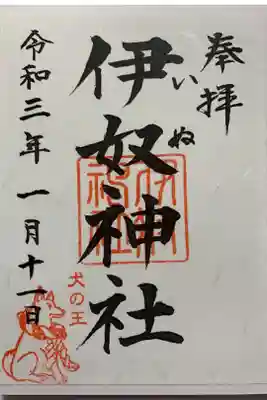 奉拝
伊奴神社
いぬ
令和三年一月十一日
伊奴神社
犬の王